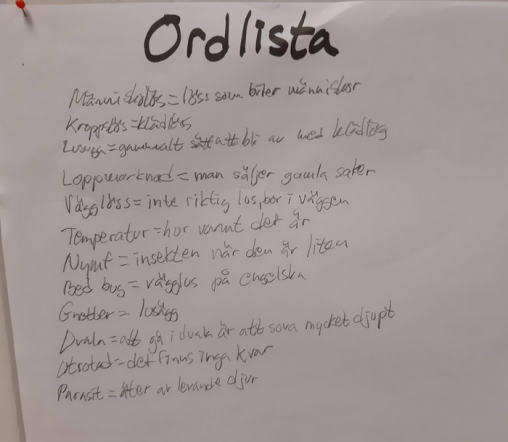 Ordlista
Människolös=löss som biter människor
Kroppslös=klädlös
=gammalt sätt att bli av med klädlös
Loppmarknad=man säljer gamla saker
Vägglöss=inte riktig lus, bor i väggen
Temperatur=hur varmt det är
Nymf=insekten när den är liten
Bed bug=vägglus på engelska
Gnetter=lusägg
Dvala=att gå i dvala är att sova mycket djupt
Utrotad=det finns inga kvar
Parasit=äter av levande djur